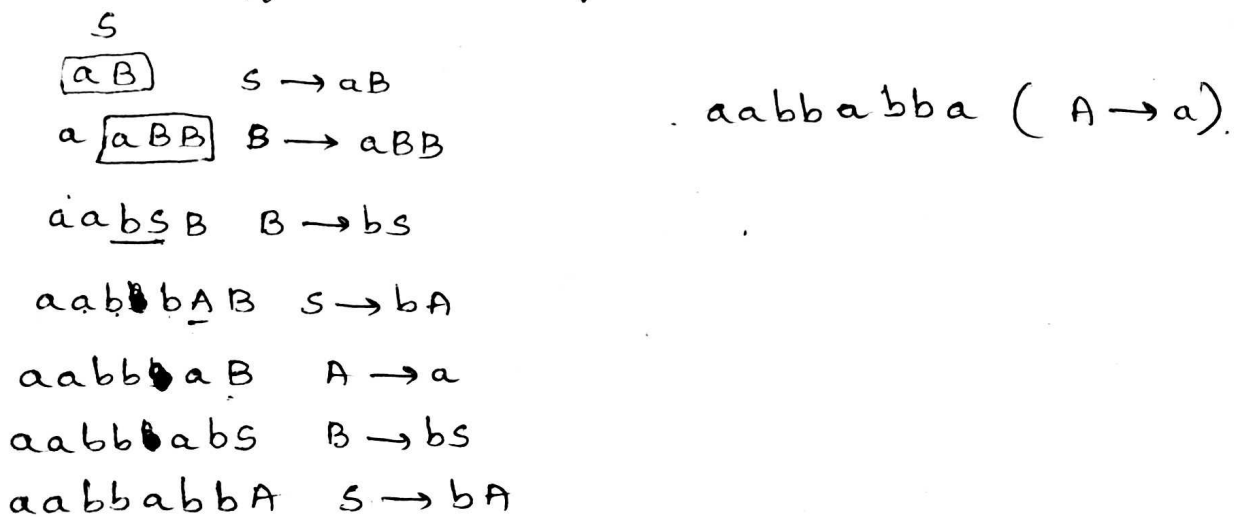 S
aB S → aB
a aBB B → aBB
aabSB B → bS
aabbAB S → bA
aabbaB A → a
aabbabS B → bS
aabbabbA S → bA
aabbabba (A → a).